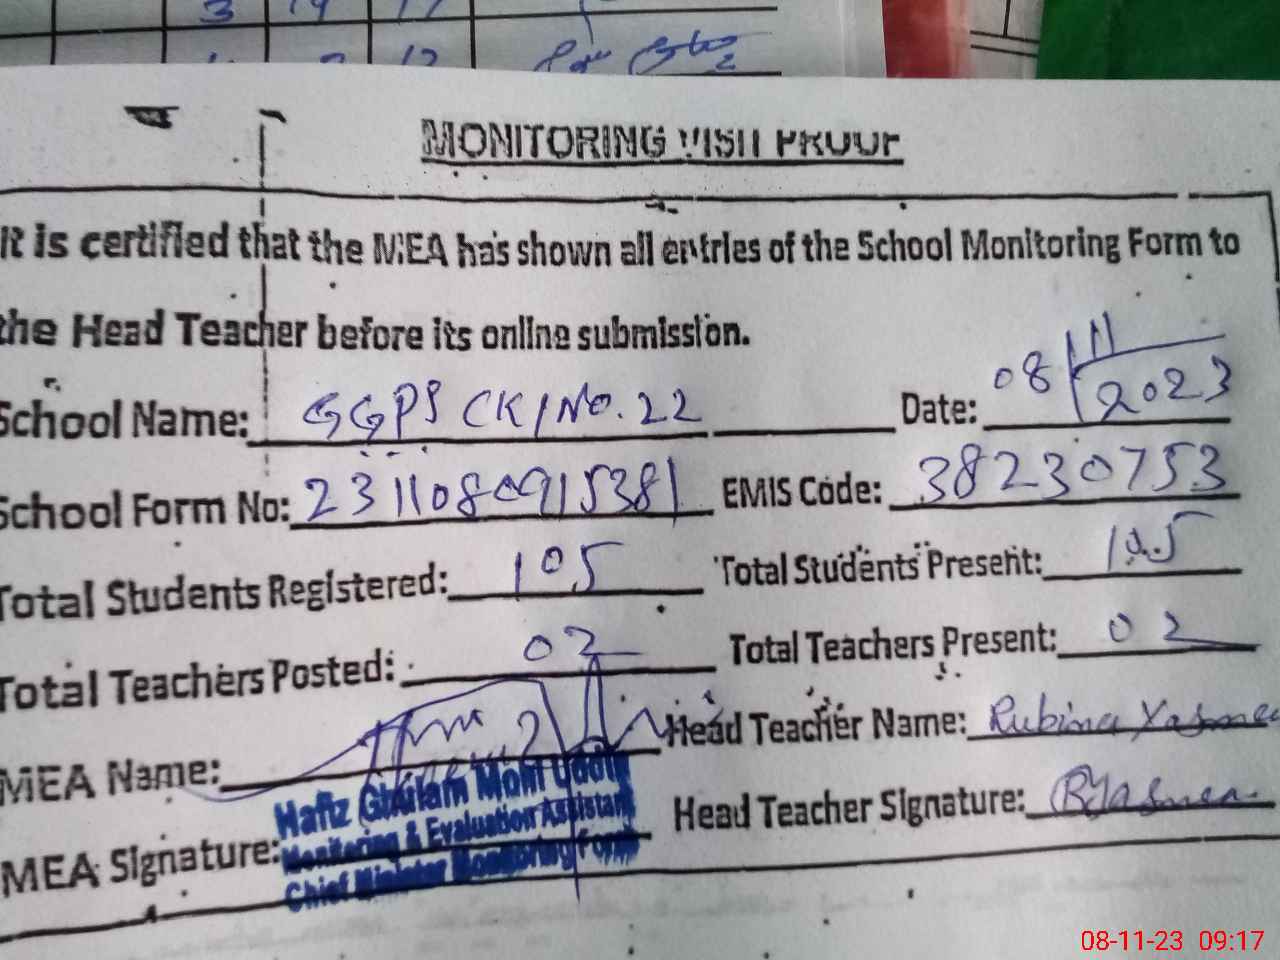 3 19 17
12
MONITORING VISIT PROOF
It is certified that the MEA has shown all entries of the School Monitoring Form to
the Head Teacher before its online submission.
School Name: GGPS CK/NO.22 Date: 08/11/2023
School Form No: 2311080915381 EMIS Code: 38230753
Total Students Registered: 105 Total Students Present: 105
Total Teachers Posted: 02 Total Teachers Present: 02
MEA Name: Head Teacher Name: Rubina Yasmeen
Hafiz Ghulam Mohi Uddin
Monitoring & Evaluation Assistant
Chief Minister Monitoring Force
MEA Signature: Head Teacher Signature: RYasmeen
08-11-23 09:17